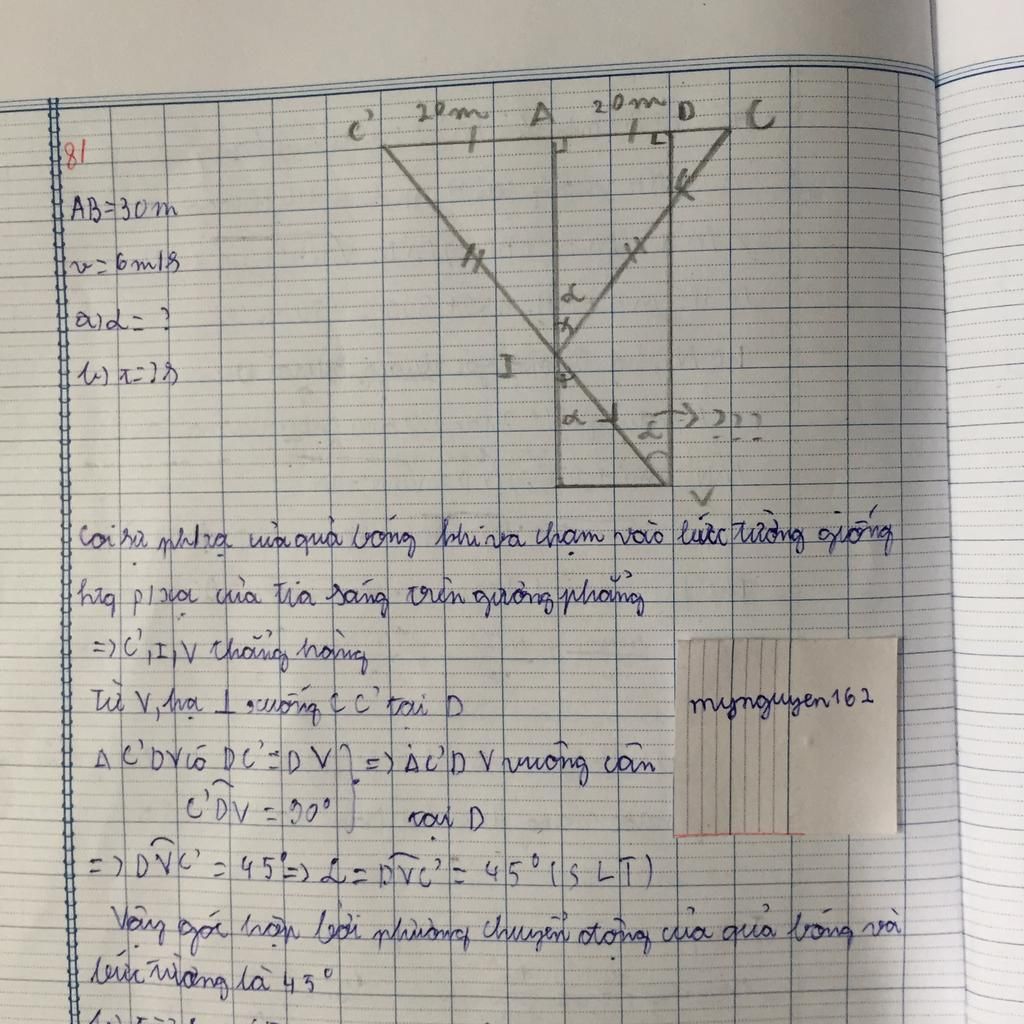 C' 20m A 20m D C
81
AB=30m
v=6m/s
a) α= ?
b) t=?s
α
I
α → ???
V
Coi sự phxạ của quả bóng khi va chạm vào bức tường giống
htg p/xạ của tia sáng trên gương phẳng
=> C', I, V thẳng hàng
Từ V, hạ ⊥ xuống CC' tại D
Δ C'DV có DC'=DV } => ΔC'DV vuông cân
C'DV = 90° } tại D
=> DVC' = 45° => α = DVC' = 45° (SLT)
Vậy góc hợp bởi phương chuyển động của quả bóng và
bức tường là 45°
mynguyen162